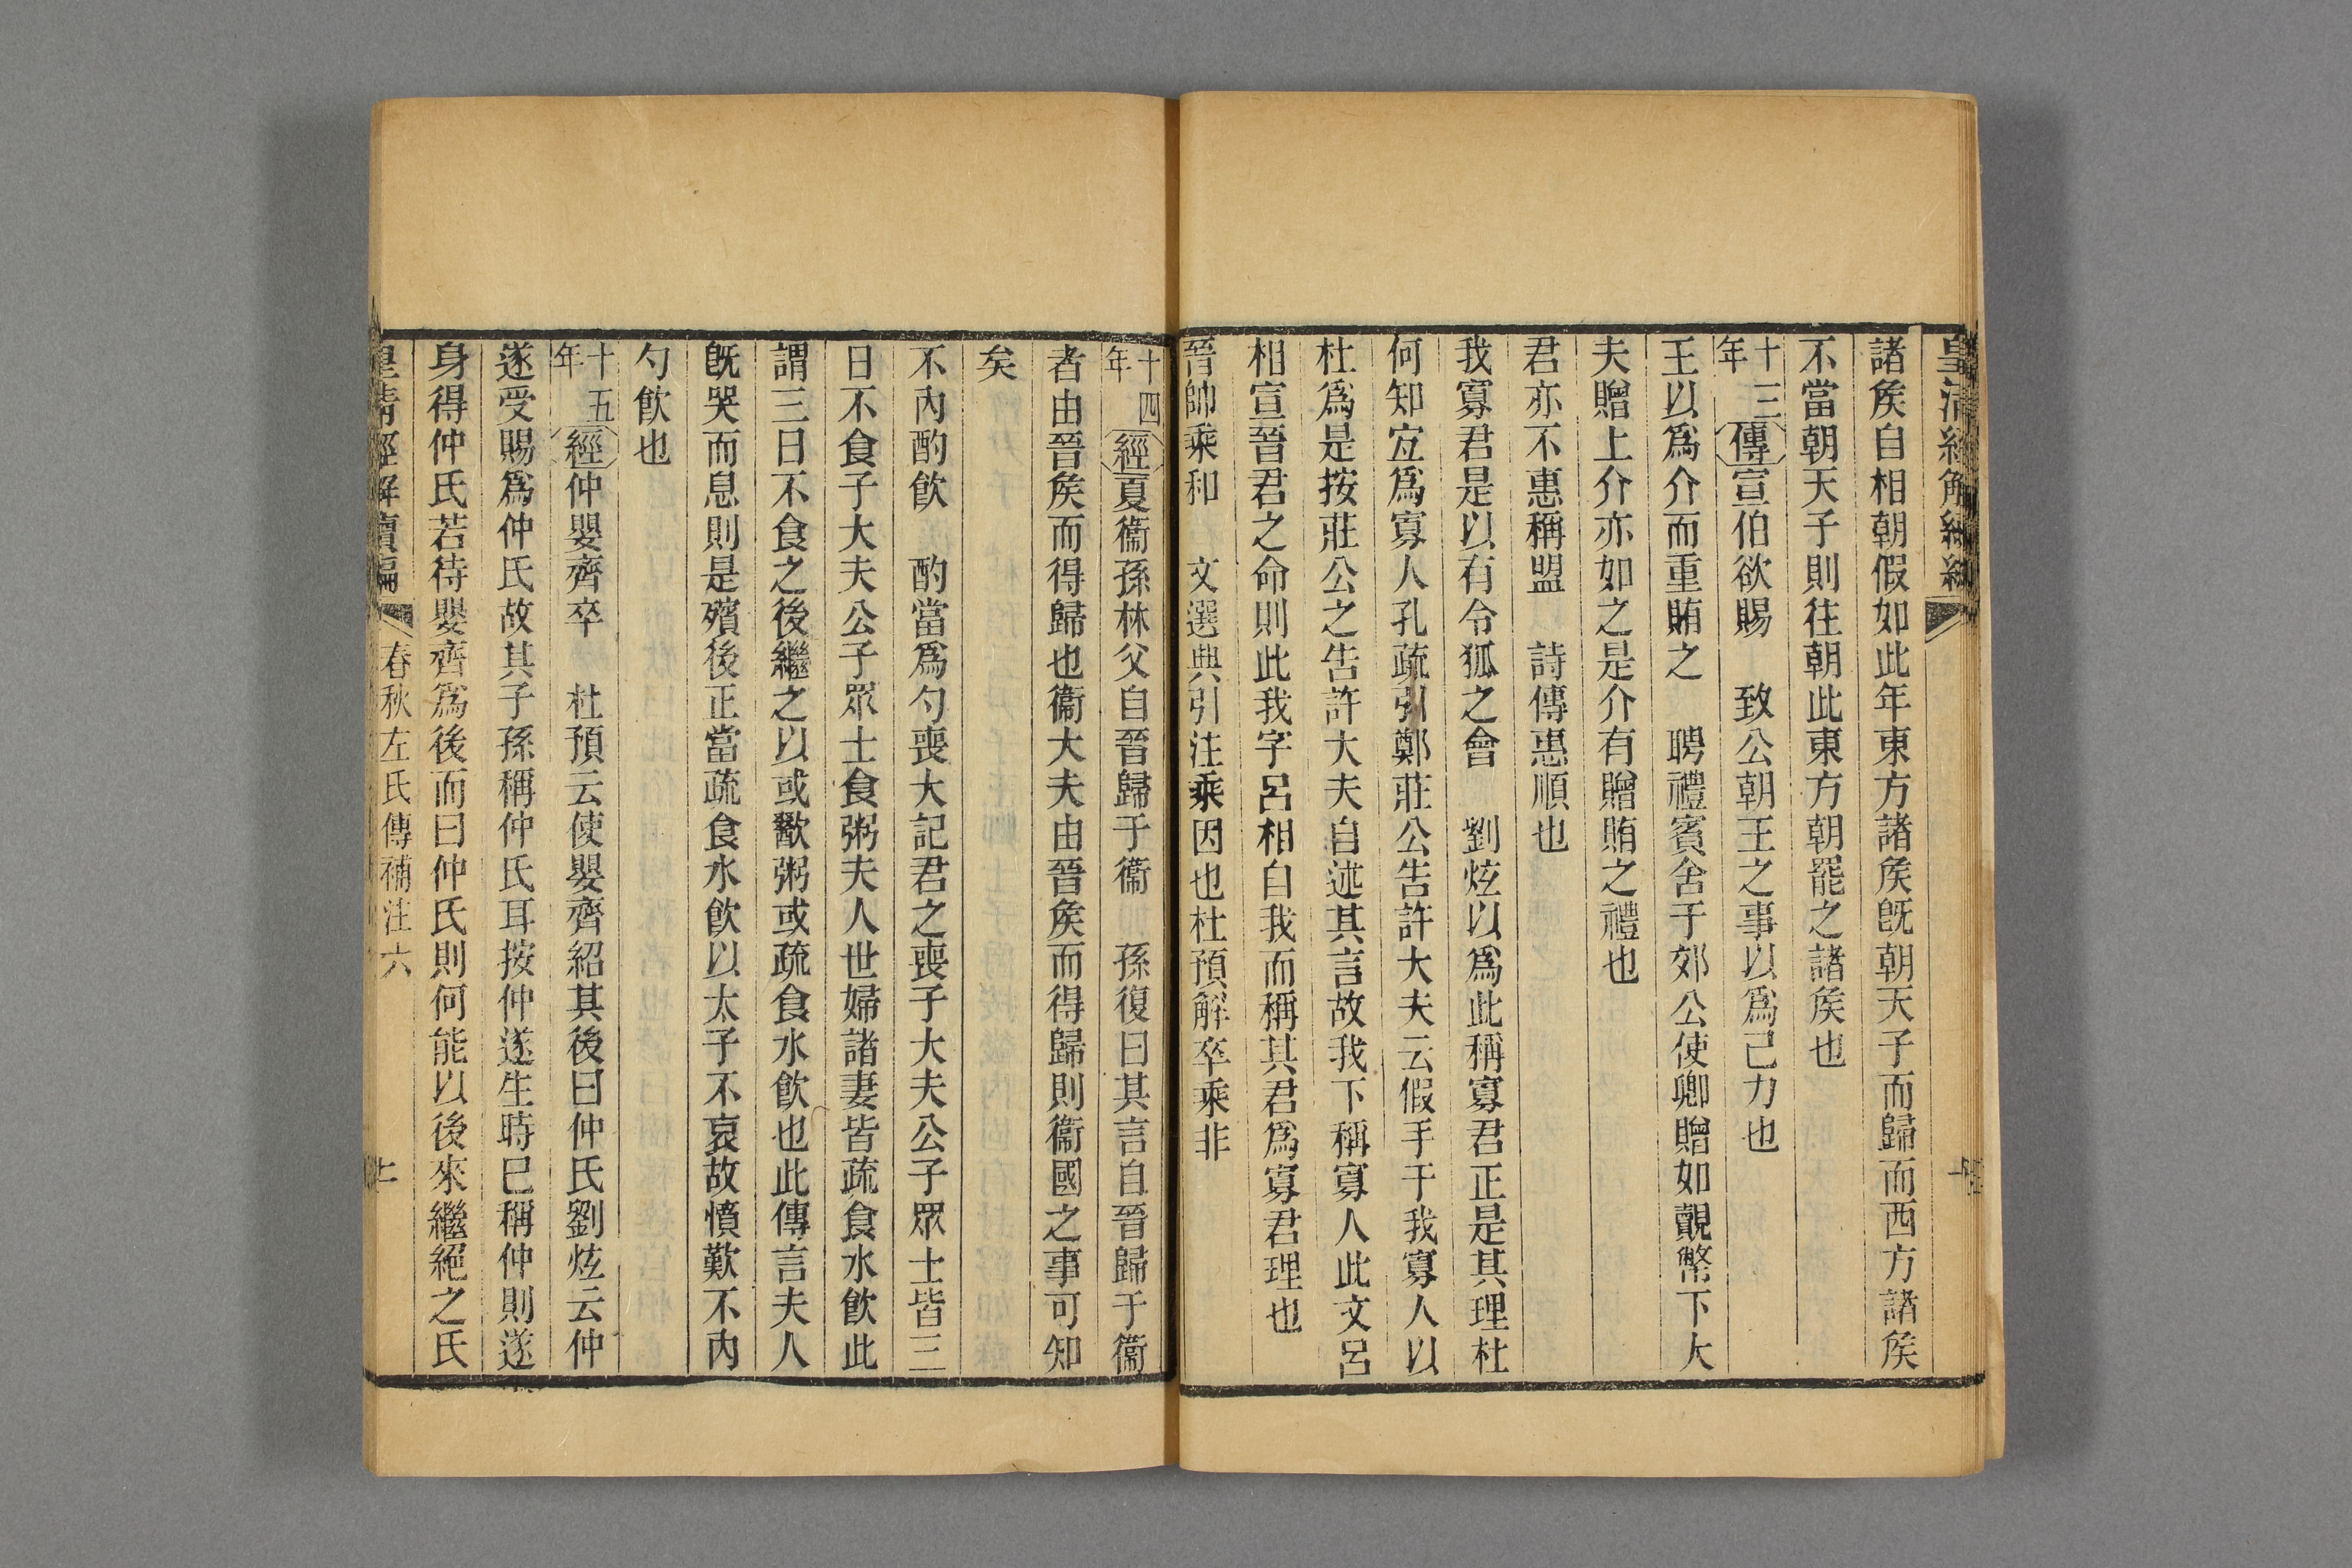 皇清經解續編
諸矦自相朝假如此年東方諸矦旣朝天子而歸而西方諸矦
不當朝天子則往朝此東方朝罷之諸矦也
十三年傳宣伯欲賜　致公朝王之事以爲己力也
王以爲介而重賄之　聘禮賓舍于郊公使卿贈如覿幣下大
夫贈上介亦如之是介有贈賄之禮也
君亦不惠稱盟　詩傳惠順也
我寡君是以有令狐之會　劉炫以爲此稱寡君正是其理杜
何知宐爲寡人孔疏引鄭莊公告許大夫云假手于我寡人以
杜爲是按莊公之告許大夫自述其言故我下稱寡人此文呂
相宣晉君之命則此我字呂相自我而稱其君爲寡君理也
晉帥乘和　文選典引注乘因也杜預解卒乘非
十四年經夏衞孫林父自晉歸于衞　孫復曰其言自晉歸于衞
者由晉矦而得歸也衞大夫由晉矦而得歸則衞國之事可知
矣
不內酌飮　酌當爲勺喪大記君之喪子大夫公子眾士皆三
日不食子大夫公子眾士食粥夫人世婦諸妻皆疏食水飮此
謂三日不食之後繼之以或歠粥或疏食水飮也此傳言夫人
旣哭而息則是殯後正當疏食水飮以太子不哀故憤歎不內
勺飮也
十五年經仲嬰齊卒　杜預云使嬰齊紹其後曰仲氏劉炫云仲
遂受賜爲仲氏故其子孫稱仲氏耳按仲遂生時已稱仲則遂
身得仲氏若待嬰齊爲後而曰仲氏則何能以後來繼絕之氏
皇清經解續編　春秋左氏傳補注六